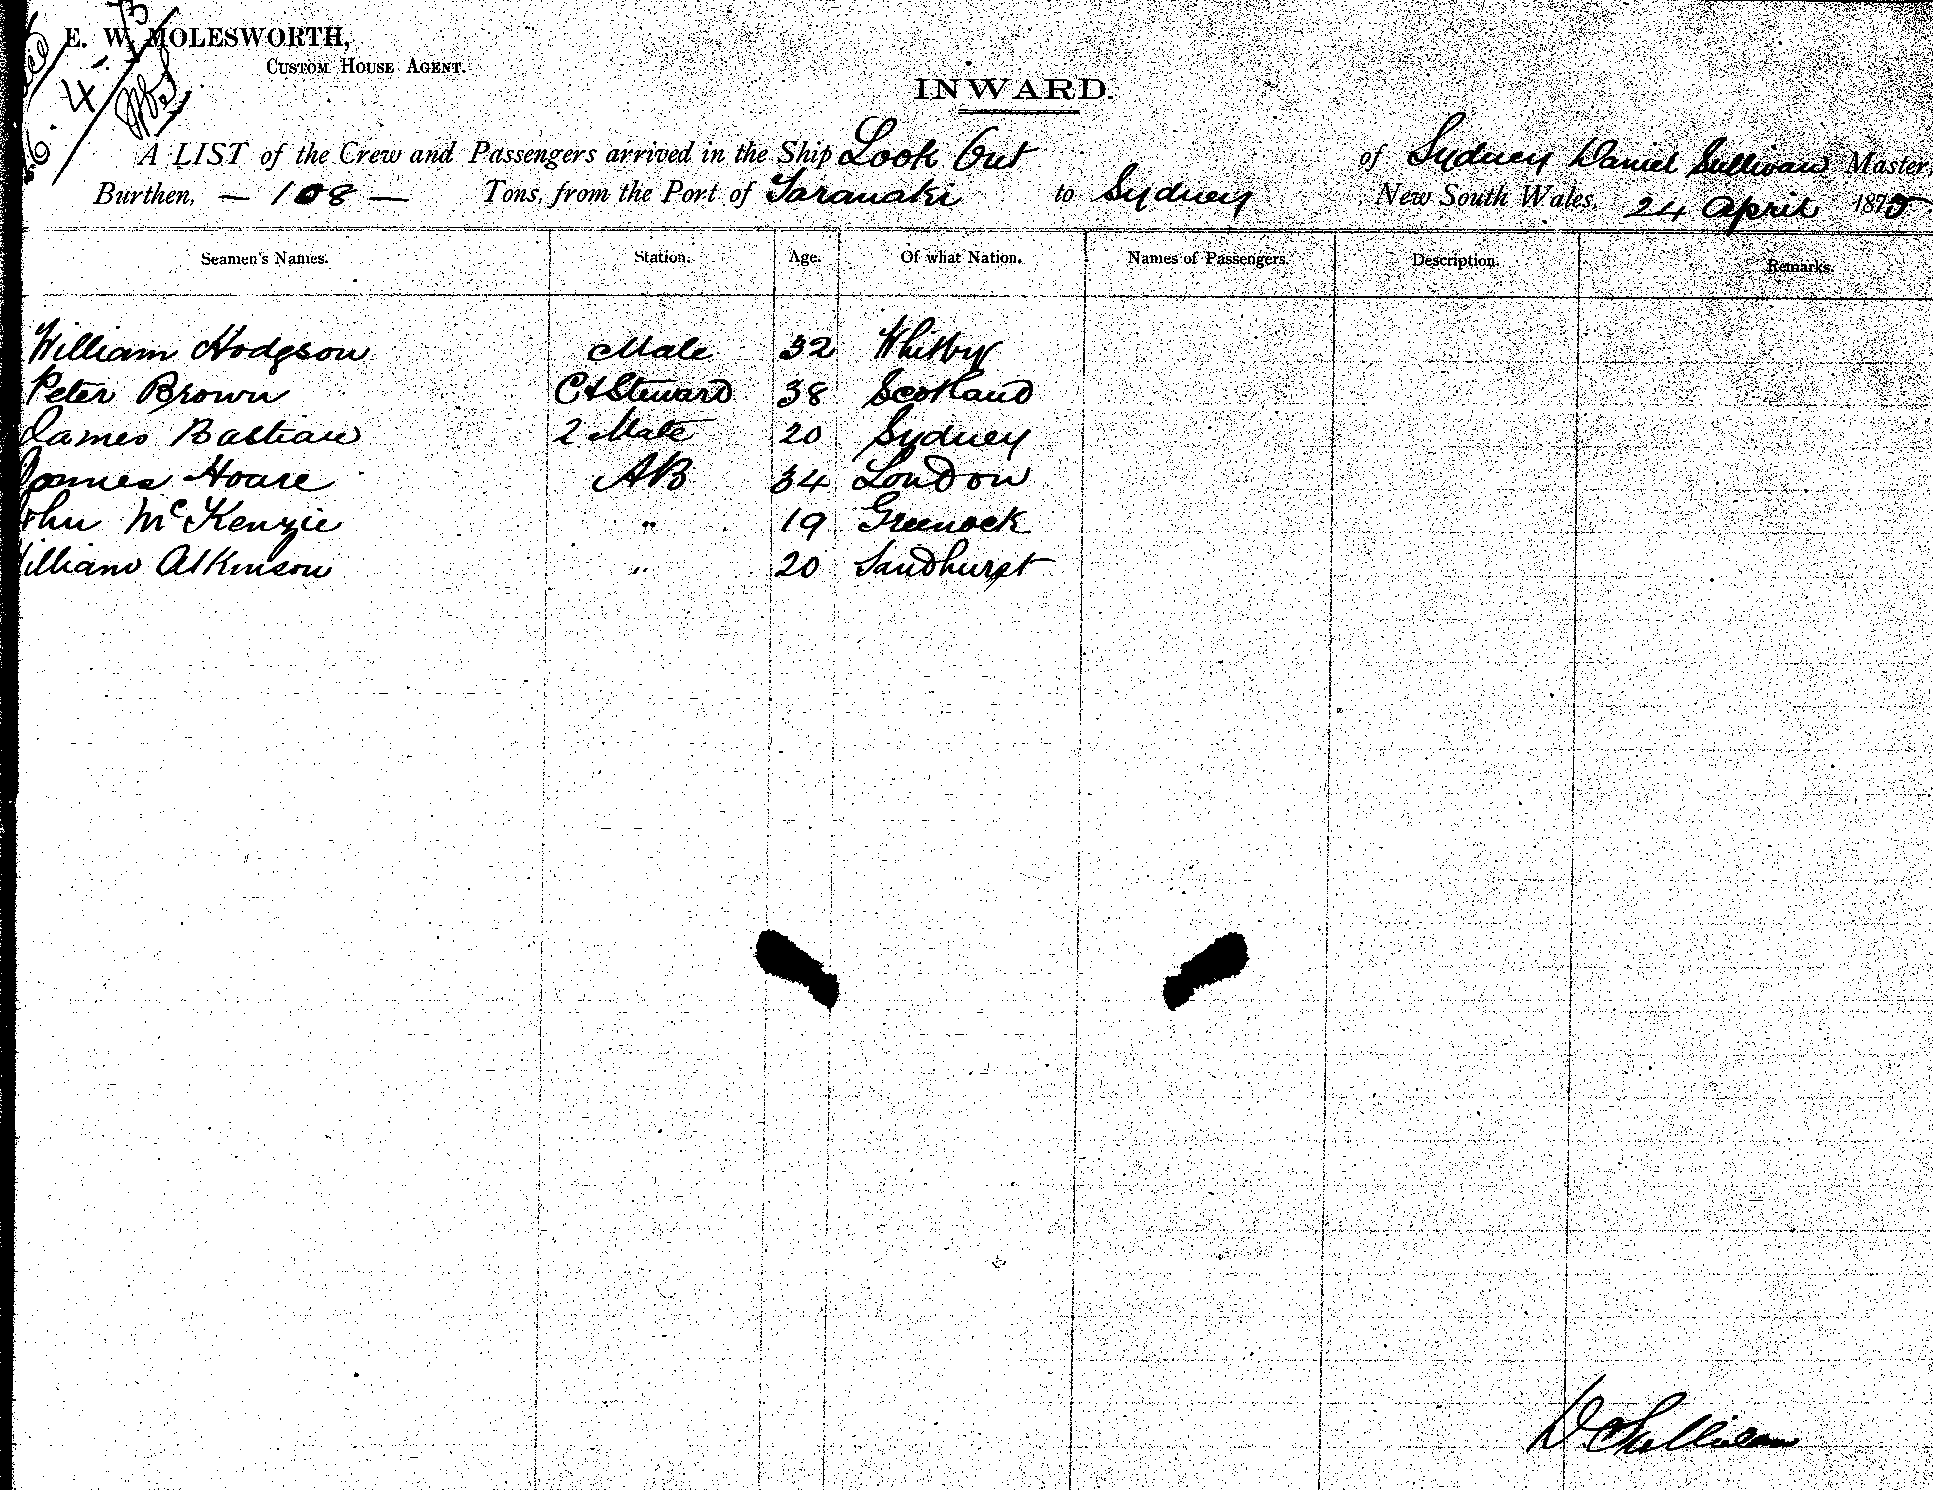 E. W. MOLESWORTH,
CUSTOM HOUSE AGENT.
INWARD.
A LIST of the Crew and Passengers arrived in the Ship Look Out of Sydney Daniel Sullivan Master,
Burthen, — 108 — Tons, from the Port of Taranaki to Sydney New South Wales, 24 April 1875.
Seamen's Names. Station. Age. Of what Nation. Names of Passengers. Description. Remarks.
William Hodgson Mate 32 Whitby
Peter Brown C & Steward 38 Scotland
James Bastian 2 Mate 20 Sydney
James Hoare AB 34 London
John McKenzie " 19 Greenock
William Atkinson " 20 Sandhurst
D. Sullivan